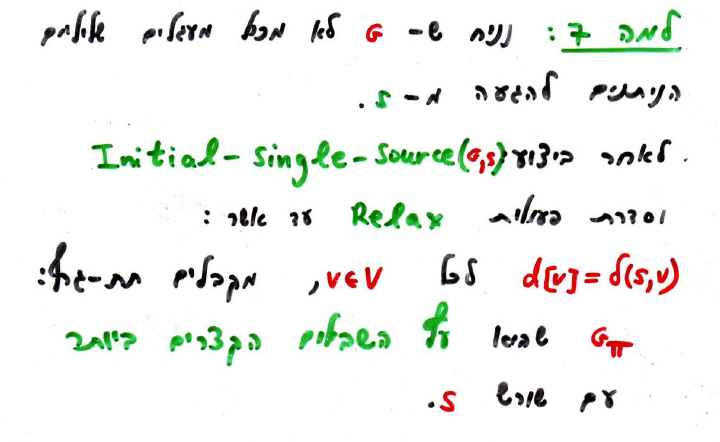 למה 7: נניח ש- G לא מכיל מעגלים שליליים
הניתנים להגעה מ- s.
לאחר ביצוע Initial-single-source(G,s)
וסדרת פעולות Relax עד אשר:
d[v]=δ(s,v) לכל v∈V, מקבלים תת-גרף:
Gπ שהוא עץ השבילים הקצרים ביותר
עם שורש s.